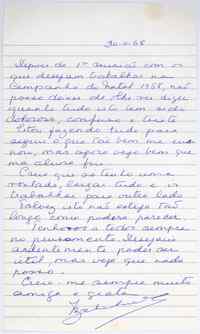 30-6-68
Depois de 1ª reunião com os
que desejam trabalhar na
Campanha do Natal 1968, não
posso deixar de lhe vir dizer
quanto tudo isto tem sido
doloroso, confuso e triste
Estou fazendo tudo para
seguir o que tão bem me
mas agora vejo bem que
Creio que só tenho uma
vontade, largar tudo e ir
trabalhar para outro lado
Talvez isto não esteja tão
longe como poderá parecer.
Tenho-os a todos sempre
no pensamento. Desejaria
ardentemente poder ser
útil, mas vejo que nada
posso.
Creia-me sempre muito
amiga e grata